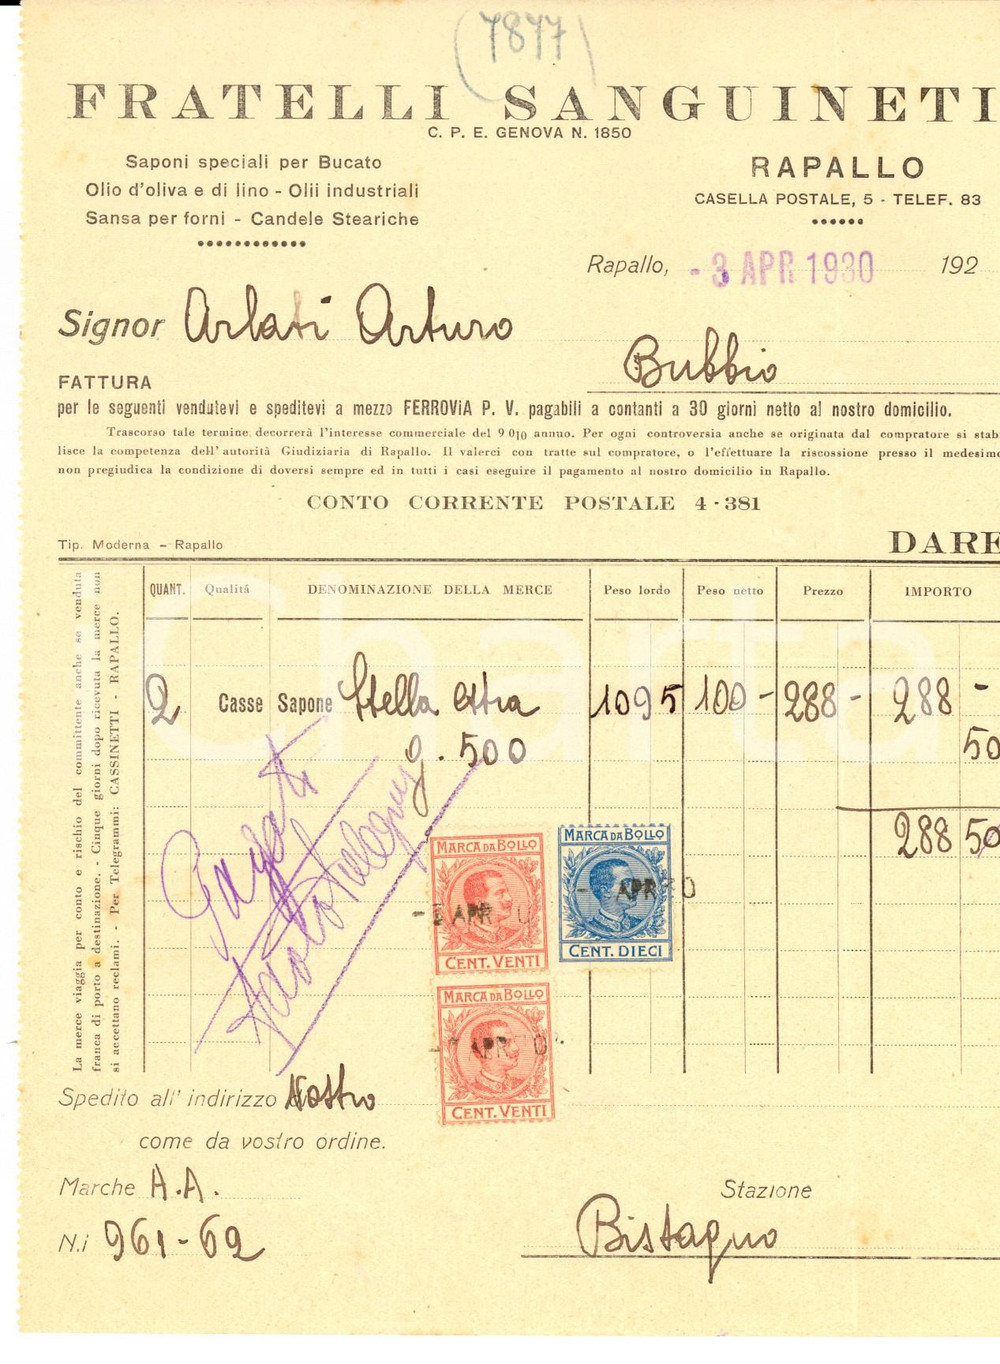 (7877)
FRATELLI SANGUINETI
C. P. E. GENOVA N. 1850
Saponi speciali per Bucato
Olio d'oliva e di lino - Olii industriali
Sansa per forni - Candele Steariche
RAPALLO
CASELLA POSTALE, 5 - TELEF. 83
Rapallo, - 3 APR 1930 192
Signor Arlati Arturo
Bubbio
FATTURA
per le seguenti vendutevi e speditevi a mezzo FERROVIA P. V. pagabili a contanti a 30 giorni netto al nostro domicilio.
Trascorso tale termine decorrerà l'interesse commerciale del 9 0|0 annuo. Per ogni controversia anche se originata dal compratore si stabi
lisce la competenza dell'autorità Giudiziaria di Rapallo. Il valerci con tratte sul compratore, o l'effettuare la riscossione presso il medesimo
non pregiudica la condizione di doversi sempre ed in tutti i casi eseguire il pagamento al nostro domicilio in Rapallo.
CONTO CORRENTE POSTALE 4 - 381
Tip. Moderna - Rapallo
DARE
QUANT. Qualitá DENOMINAZIONE DELLA MERCE Peso lordo Peso netto Prezzo IMPORTO
2 Casse Sapone Stella extra 1095 100 - 288 - 288 -
g. 500 50
288 50
La merce viaggia per conto e rischio del committente anche se venduta
franca di porto a destinazione. - Cinque giorni dopo ricevuta la merce non
si accettano reclami. - Per Telegrammi: CASSINETTI - RAPALLO.
MARCA DA BOLLO
CENT. VENTI
MARCA DA BOLLO
CENT. DIECI
MARCA DA BOLLO
CENT. VENTI
Spedito all' indirizzo Vostro
come da vostro ordine.
Marche A.A.
N.i 961-62
Stazione
Bistagno
Charta